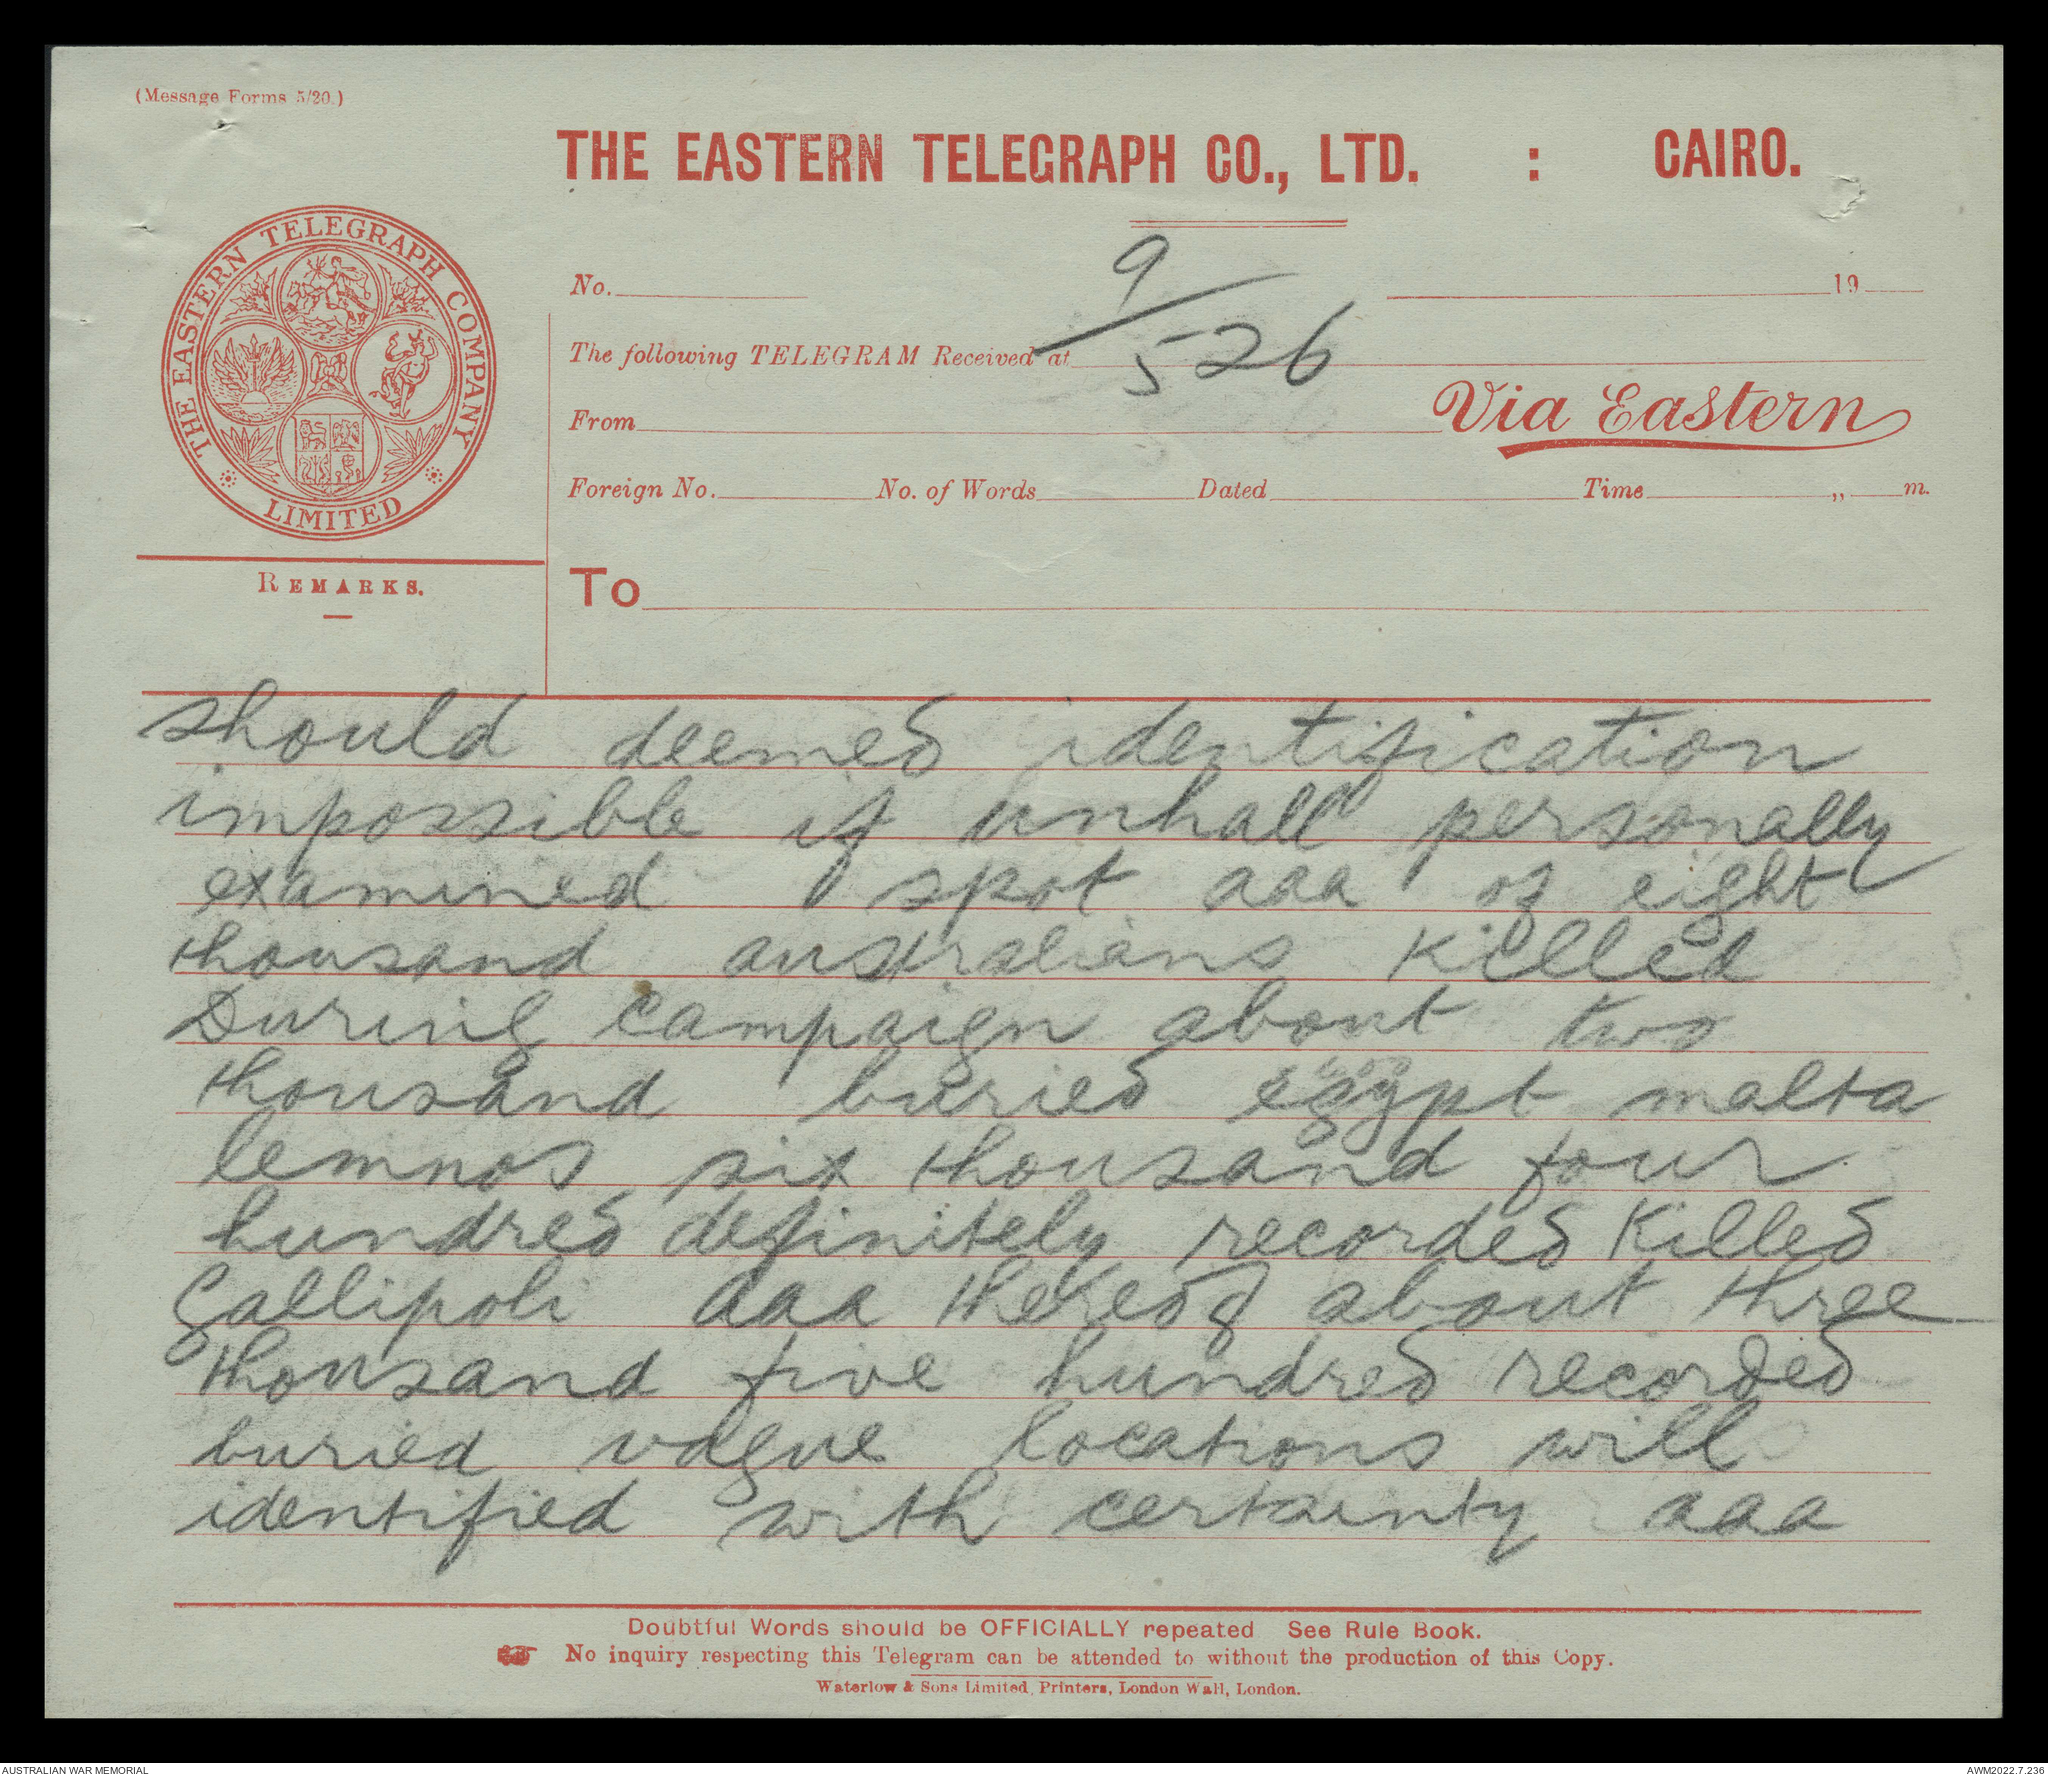 (Message Forms 5/20.)
THE EASTERN TELEGRAPH CO., LTD. : CAIRO.
THE EASTERN TELEGRAPH COMPANY LIMITED
No. 19
9/526
The following TELEGRAM Received at
From Via Eastern
Foreign No. No. of Words Dated Time „ m.
REMARKS.
To
should deemed identification
impossible if unhall personally
examined spot aaa of eight
thousand australians killed
During campaign about two
thousand buried egypt malta
lemnos six thousand four
hundred definitely recorded Killed
Gallipoli aaa thereof about three
thousand five hundred recorded
buried vague locations will
identified with certainty aaa
Doubtful Words should be OFFICIALLY repeated See Rule Book.
No inquiry respecting this Telegram can be attended to without the production of this Copy.
Waterlow & Sons Limited, Printers, London Wall, London.
AUSTRALIAN WAR MEMORIAL
AWM2022.7.236